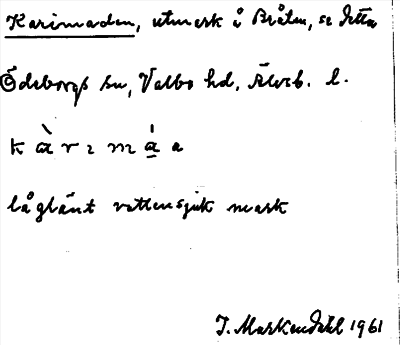 Karimaden, utmark å Bråten, se detta
Ödeborgs sn, Valbo hd, Älvsb. l.
k à r ı m á a
låglänt vattensjuk mark
J. Markendahl 1961